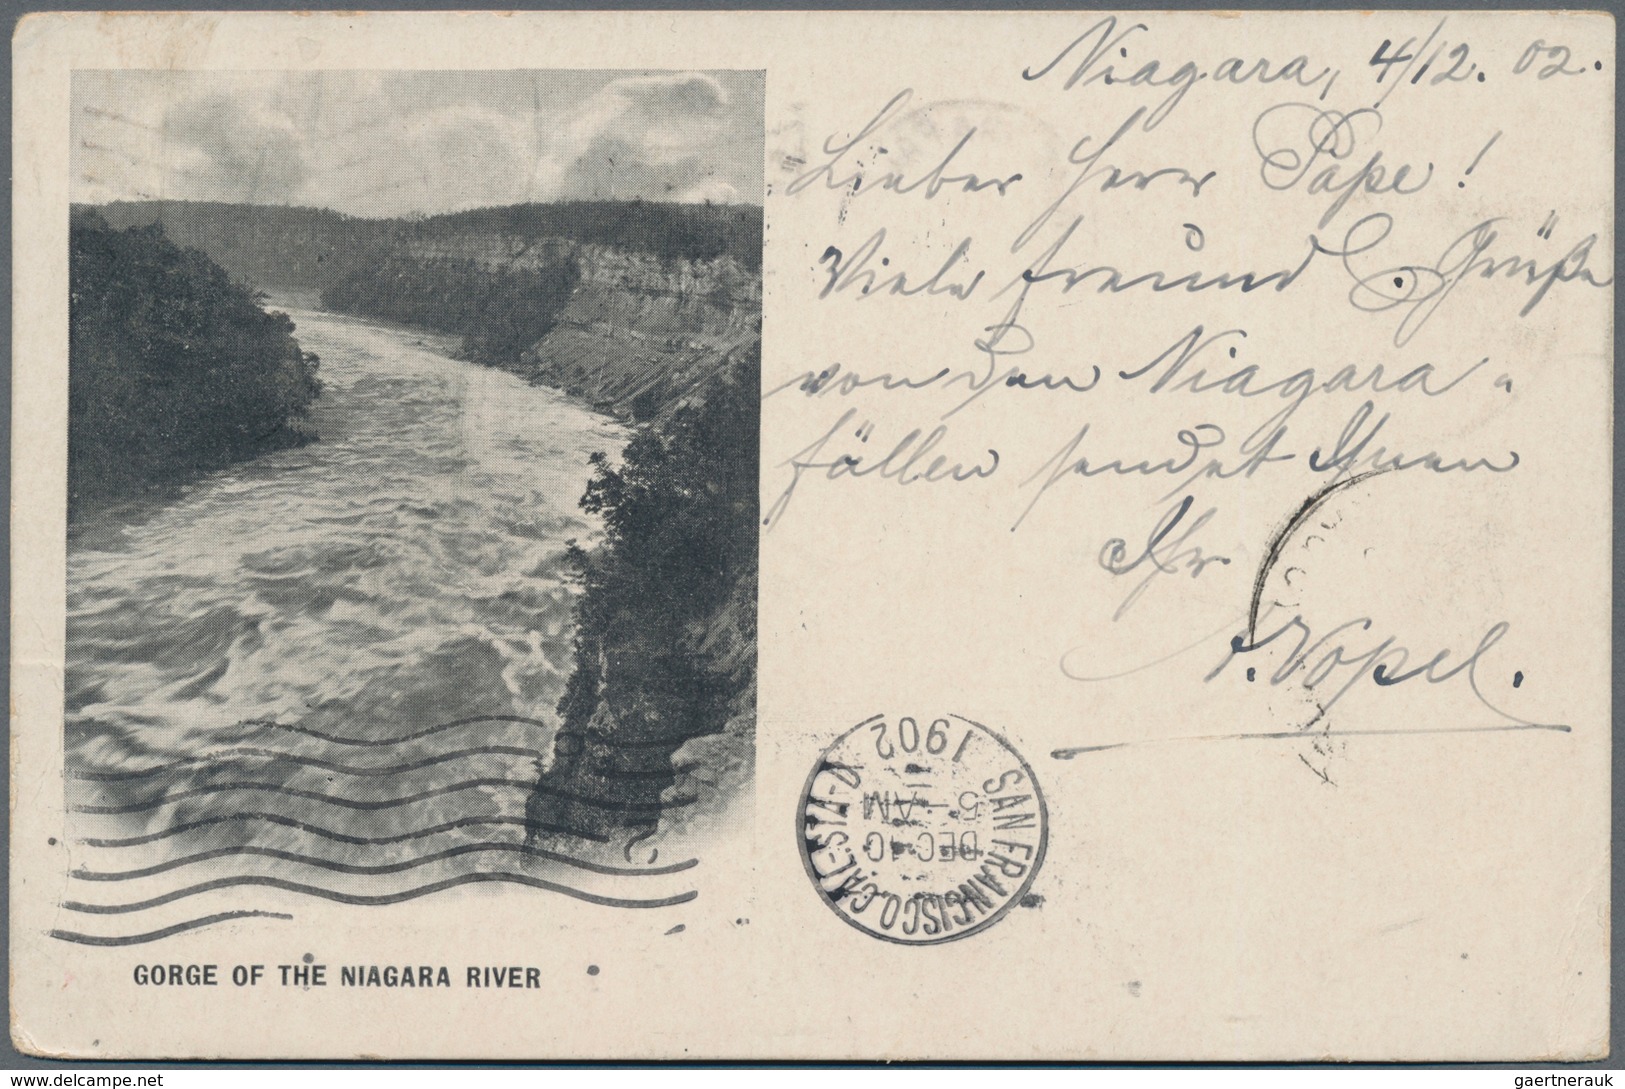 Niagara, 4/12. 02.
Lieber Herr Pape!
Viele freundl. Grüße
von den Niagara-
fällen sendet Ihnen
Ihr
F. Vopel.
SAN FRANCISCO, CAL-STA-D
DEC 10
5-AM
1902
GORGE OF THE NIAGARA RIVER
www.delcampe.net
gaertnerauk